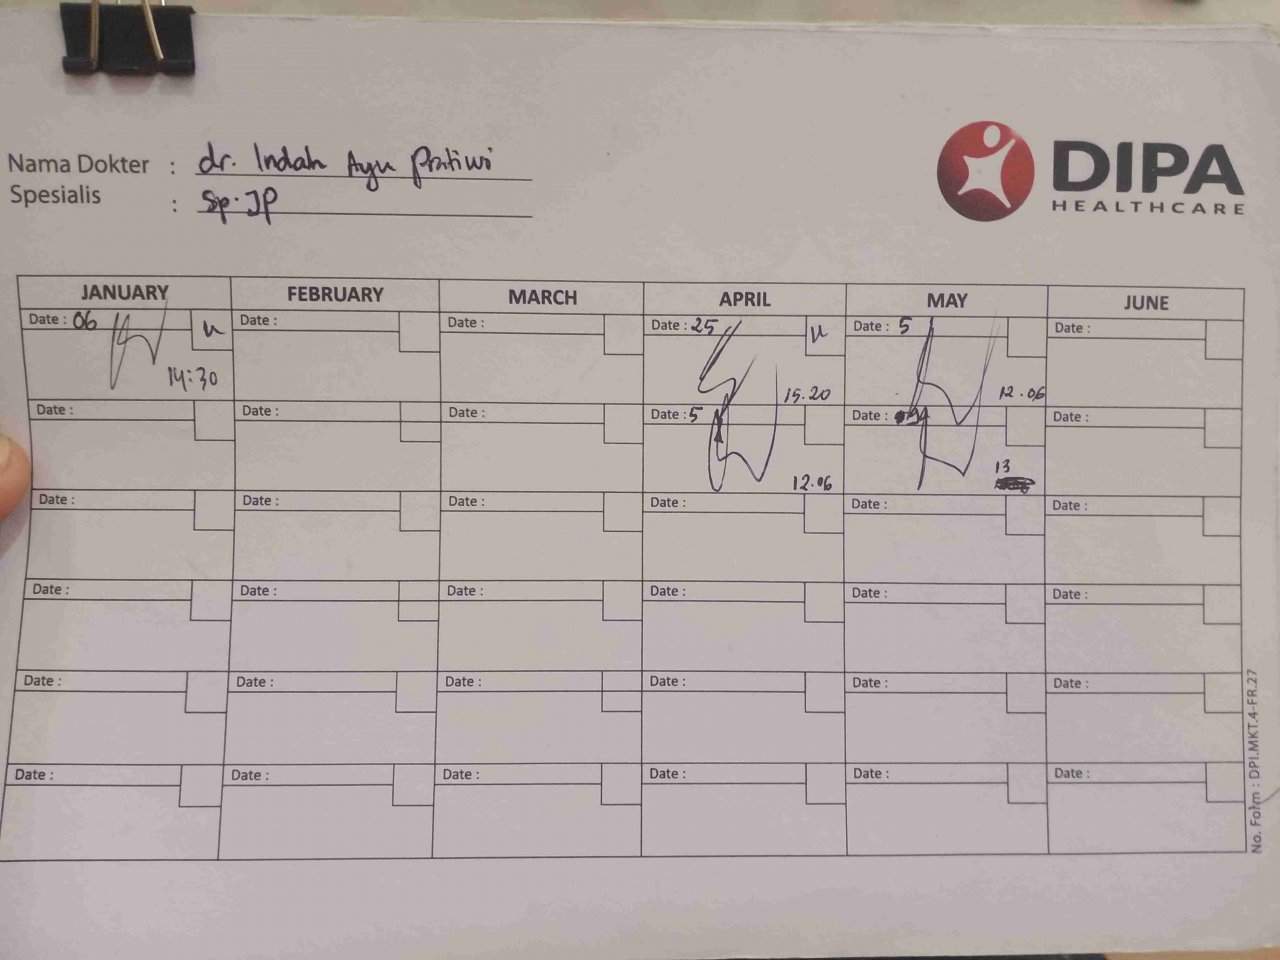 Nama Dokter : dr. Indah Ayu Pratiwi
Spesialis : Sp.JP
DIPA
HEALTHCARE
JANUARY FEBRUARY MARCH APRIL MAY JUNE
Date : 06 Date : Date : Date : 25 Date : 5 Date :
14:30 15.20 12.06
Date : Date : Date : Date : 5 Date : Date :
12.06 13
Date : Date : Date : Date : Date : Date :
Date : Date : Date : Date : Date : Date :
Date : Date : Date : Date : Date : Date :
Date : Date : Date : Date : Date : Date :
No. Form : DPI.MKT.4-FR.27